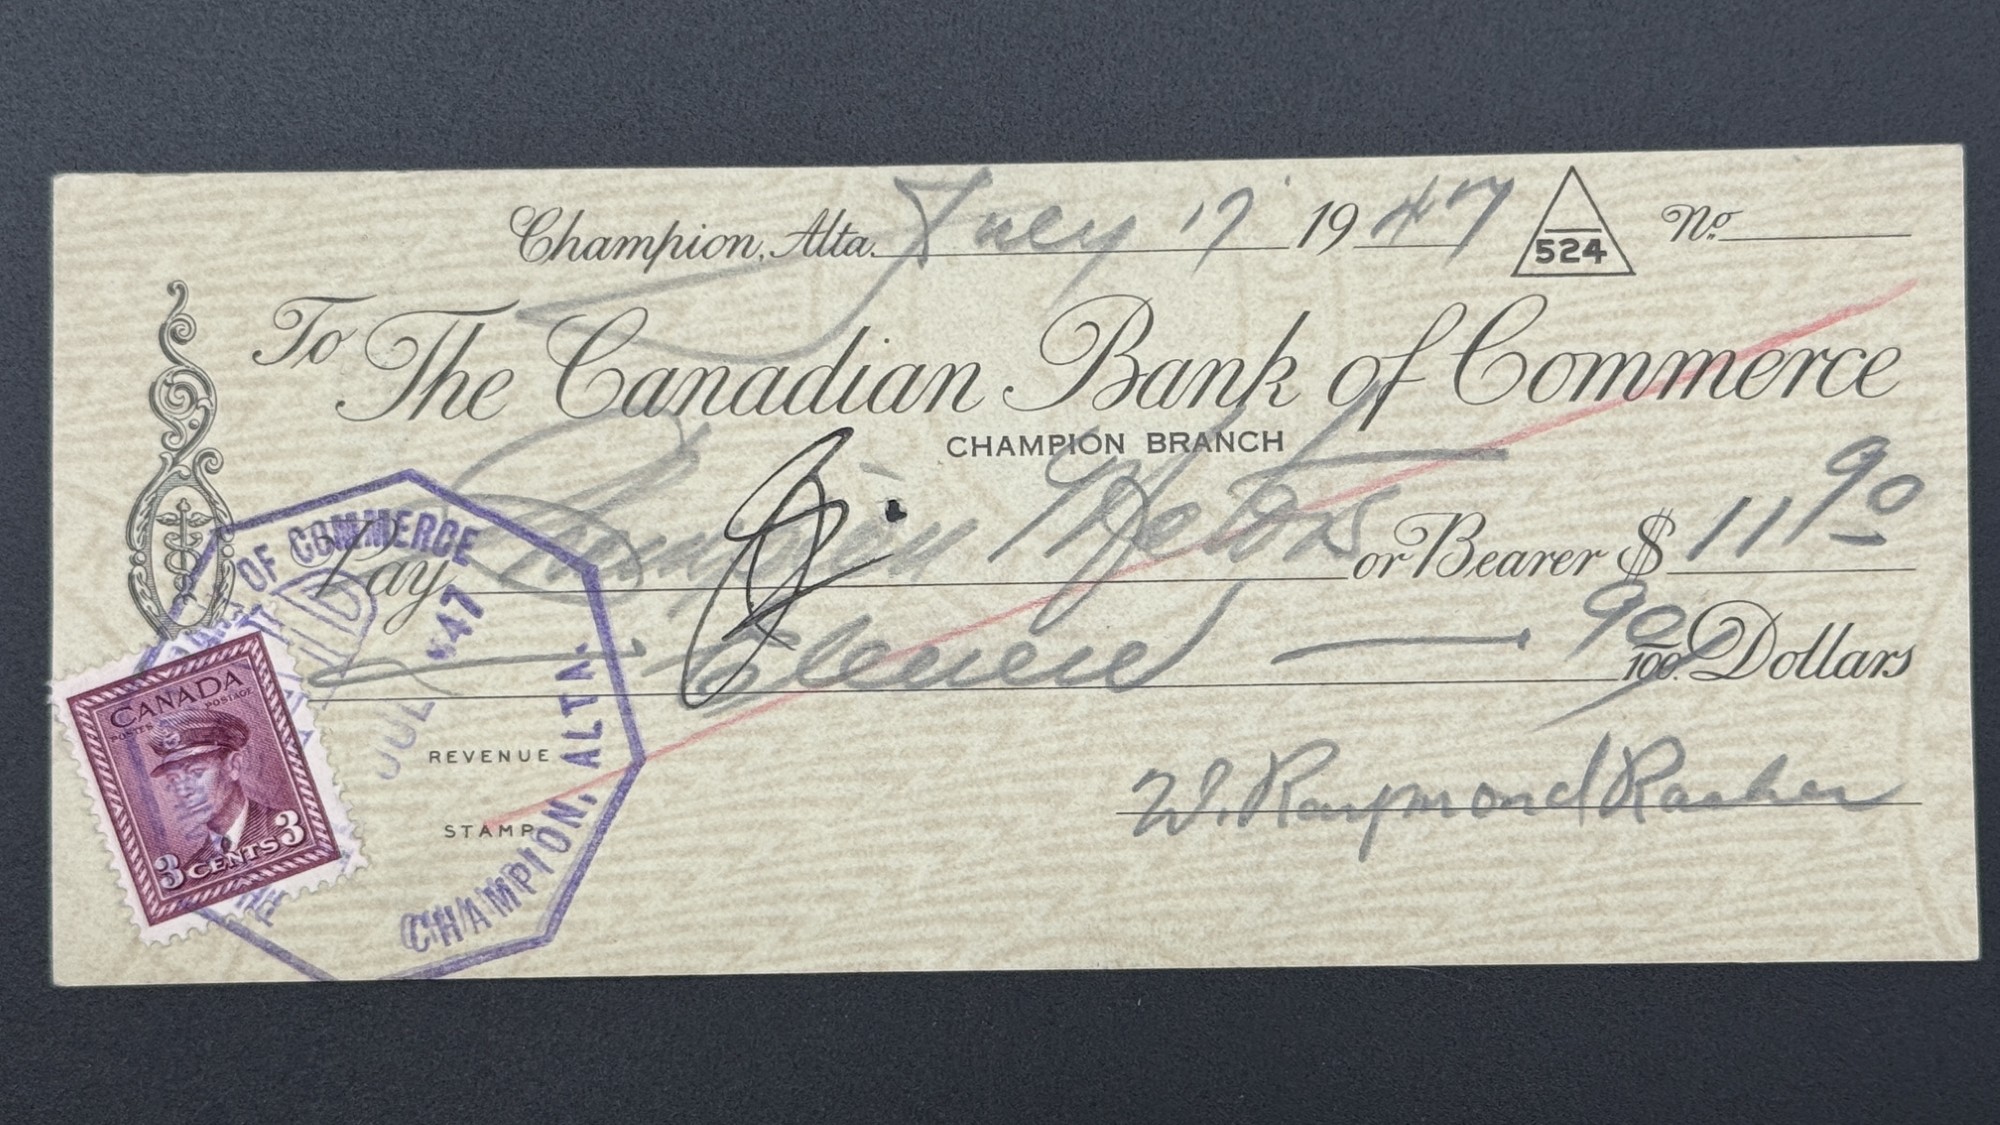 Champion, Alta. July 17 1947 524 No.
To The Canadian Bank of Commerce
CHAMPION BRANCH
Pay Champion Motors or Bearer $ 11 90
Eleven 90/100 Dollars
REVENUE
STAMP
W. Raymond
OF COMMERCE
PAID
JUL 47
CHAMPION, ALTA.
CANADA
POSTES POSTAGE
3 CENTS 3